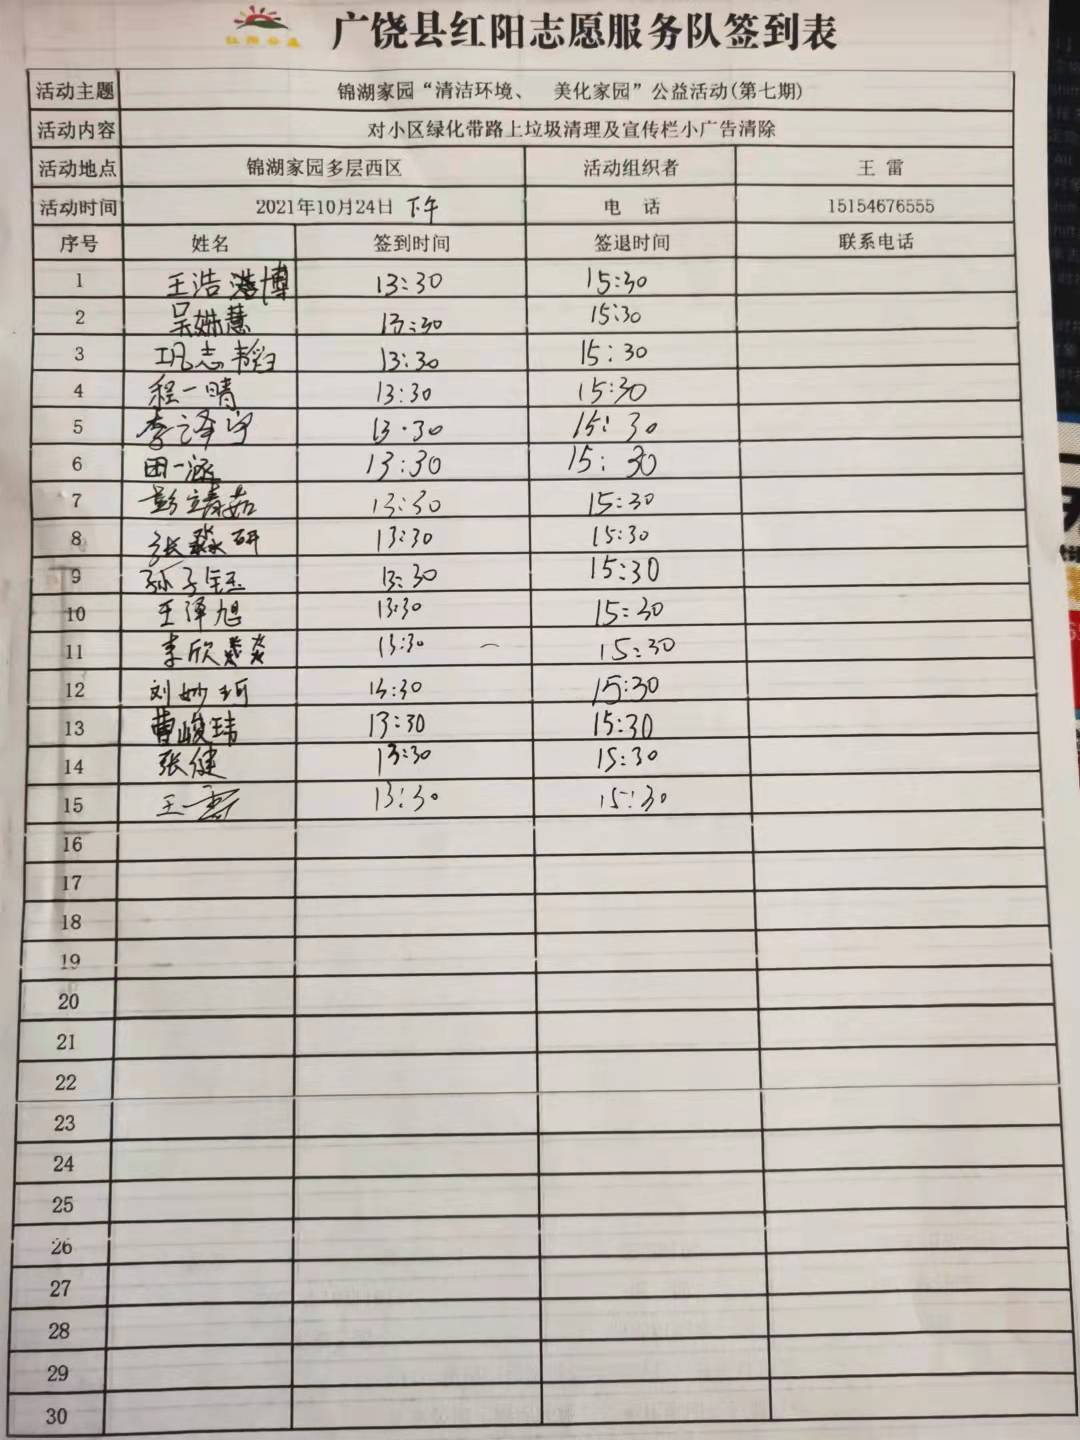 红阳公益
广饶县红阳志愿服务队签到表
活动主题 锦湖家园“清洁环境、 美化家园”公益活动(第七期)
活动内容 对小区绿化带路上垃圾清理及宣传栏小广告清除
活动地点 锦湖家园多层西区 活动组织者 王 雷
活动时间 2021年10月24日 下午 电 话 15154676555
序号 姓名 签到时间 签退时间 联系电话
1 王浩博 13:30 15:30
2 吴姝慧 13:30 15:30
3 巩志韬 13:30 15:30
4 程一晴 13:30 15:30
5 李泽宇 13:30 15:30
6 田一涵 13:30 15:30
7 彭靖茹 13:30 15:30
8 张淼研 13:30 15:30
9 孙子钰 13:30 15:30
10 王泽旭 13:30 15:30
11 李欣 13:30 15:30
12 刘妙珂 13:30 15:30
13 曹峻玮 13:30 15:30
14 张健 13:30 15:30
15 王雷 13:30 15:30
16
17
18
19
20
21
22
23
24
25
26
27
28
29
30